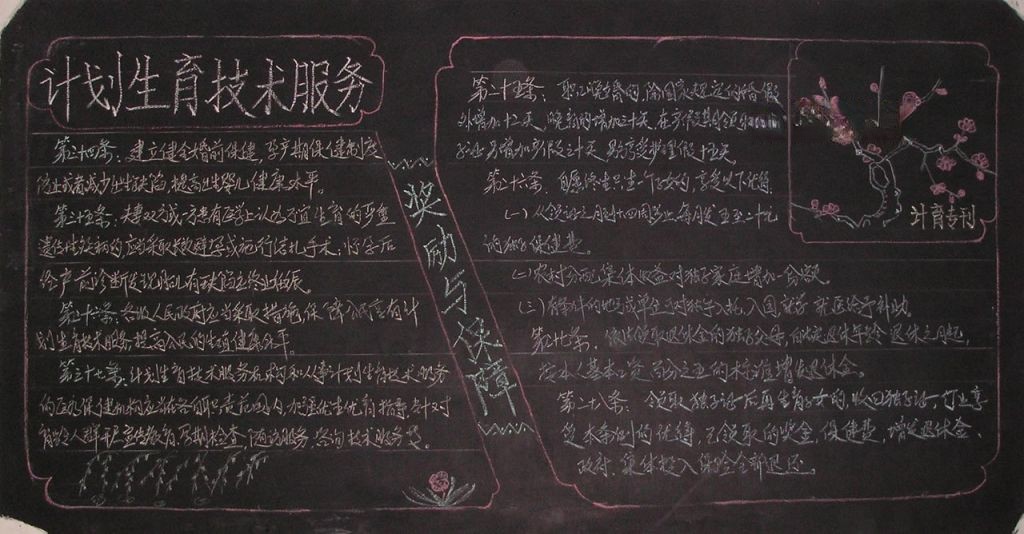 计划生育技术服务
第二十四条:建立健全婚前保健,孕产期保健制度
防止或者减少出生缺陷,提高出生婴儿健康水平。
第二十五条:夫妻双方或一方患有医学上认为不宜生育的严重
遗传性疾病的,应当采取长效避孕或施行结扎手术,怀孕后
经产前诊断发现胎儿有缺陷应终止妊娠。
第二十六条:各级人民政府应当采取措施,保障公民享有计
划生育技术服务提高公民的生殖健康水平。
第三十七条:计划生育技术服务机构和从事计划生育技术服务
的医疗保健机构应当在各自职责范围内,加强优生优育指导,针对
育龄人群开展宣传教育,孕期检查,随访服务,咨询技术服务等。
奖励与保障
第二十五条:职工晚婚的,除国家规定的婚假
外增加十二天,晚育的增加三十天,在产假期领
另增加产假三十天,男方享受护理假十五天。
第二十六条:自愿终生只生一个子女的,享受以下优待:
(一)从领证之月到十四周岁止,每月发五至二十元
的独子保健费。
(二)农村分配集体收益对独子家庭增加一份额。
(三)有条件的地方或单位,对独子入托、入园、就学、就医给予补助。
第二十七条:领取退休金的独子父母,自法定退休年龄退休之月起,
按本人基本工资百分之五的标准增发退休金。
第二十八条:领取独子证后再生育子女的,收回独子证,停止享
受本条例的优待,已领取的奖金、保健费、增发退休金、
政府、集体投入保险全部退还。
计育专刊